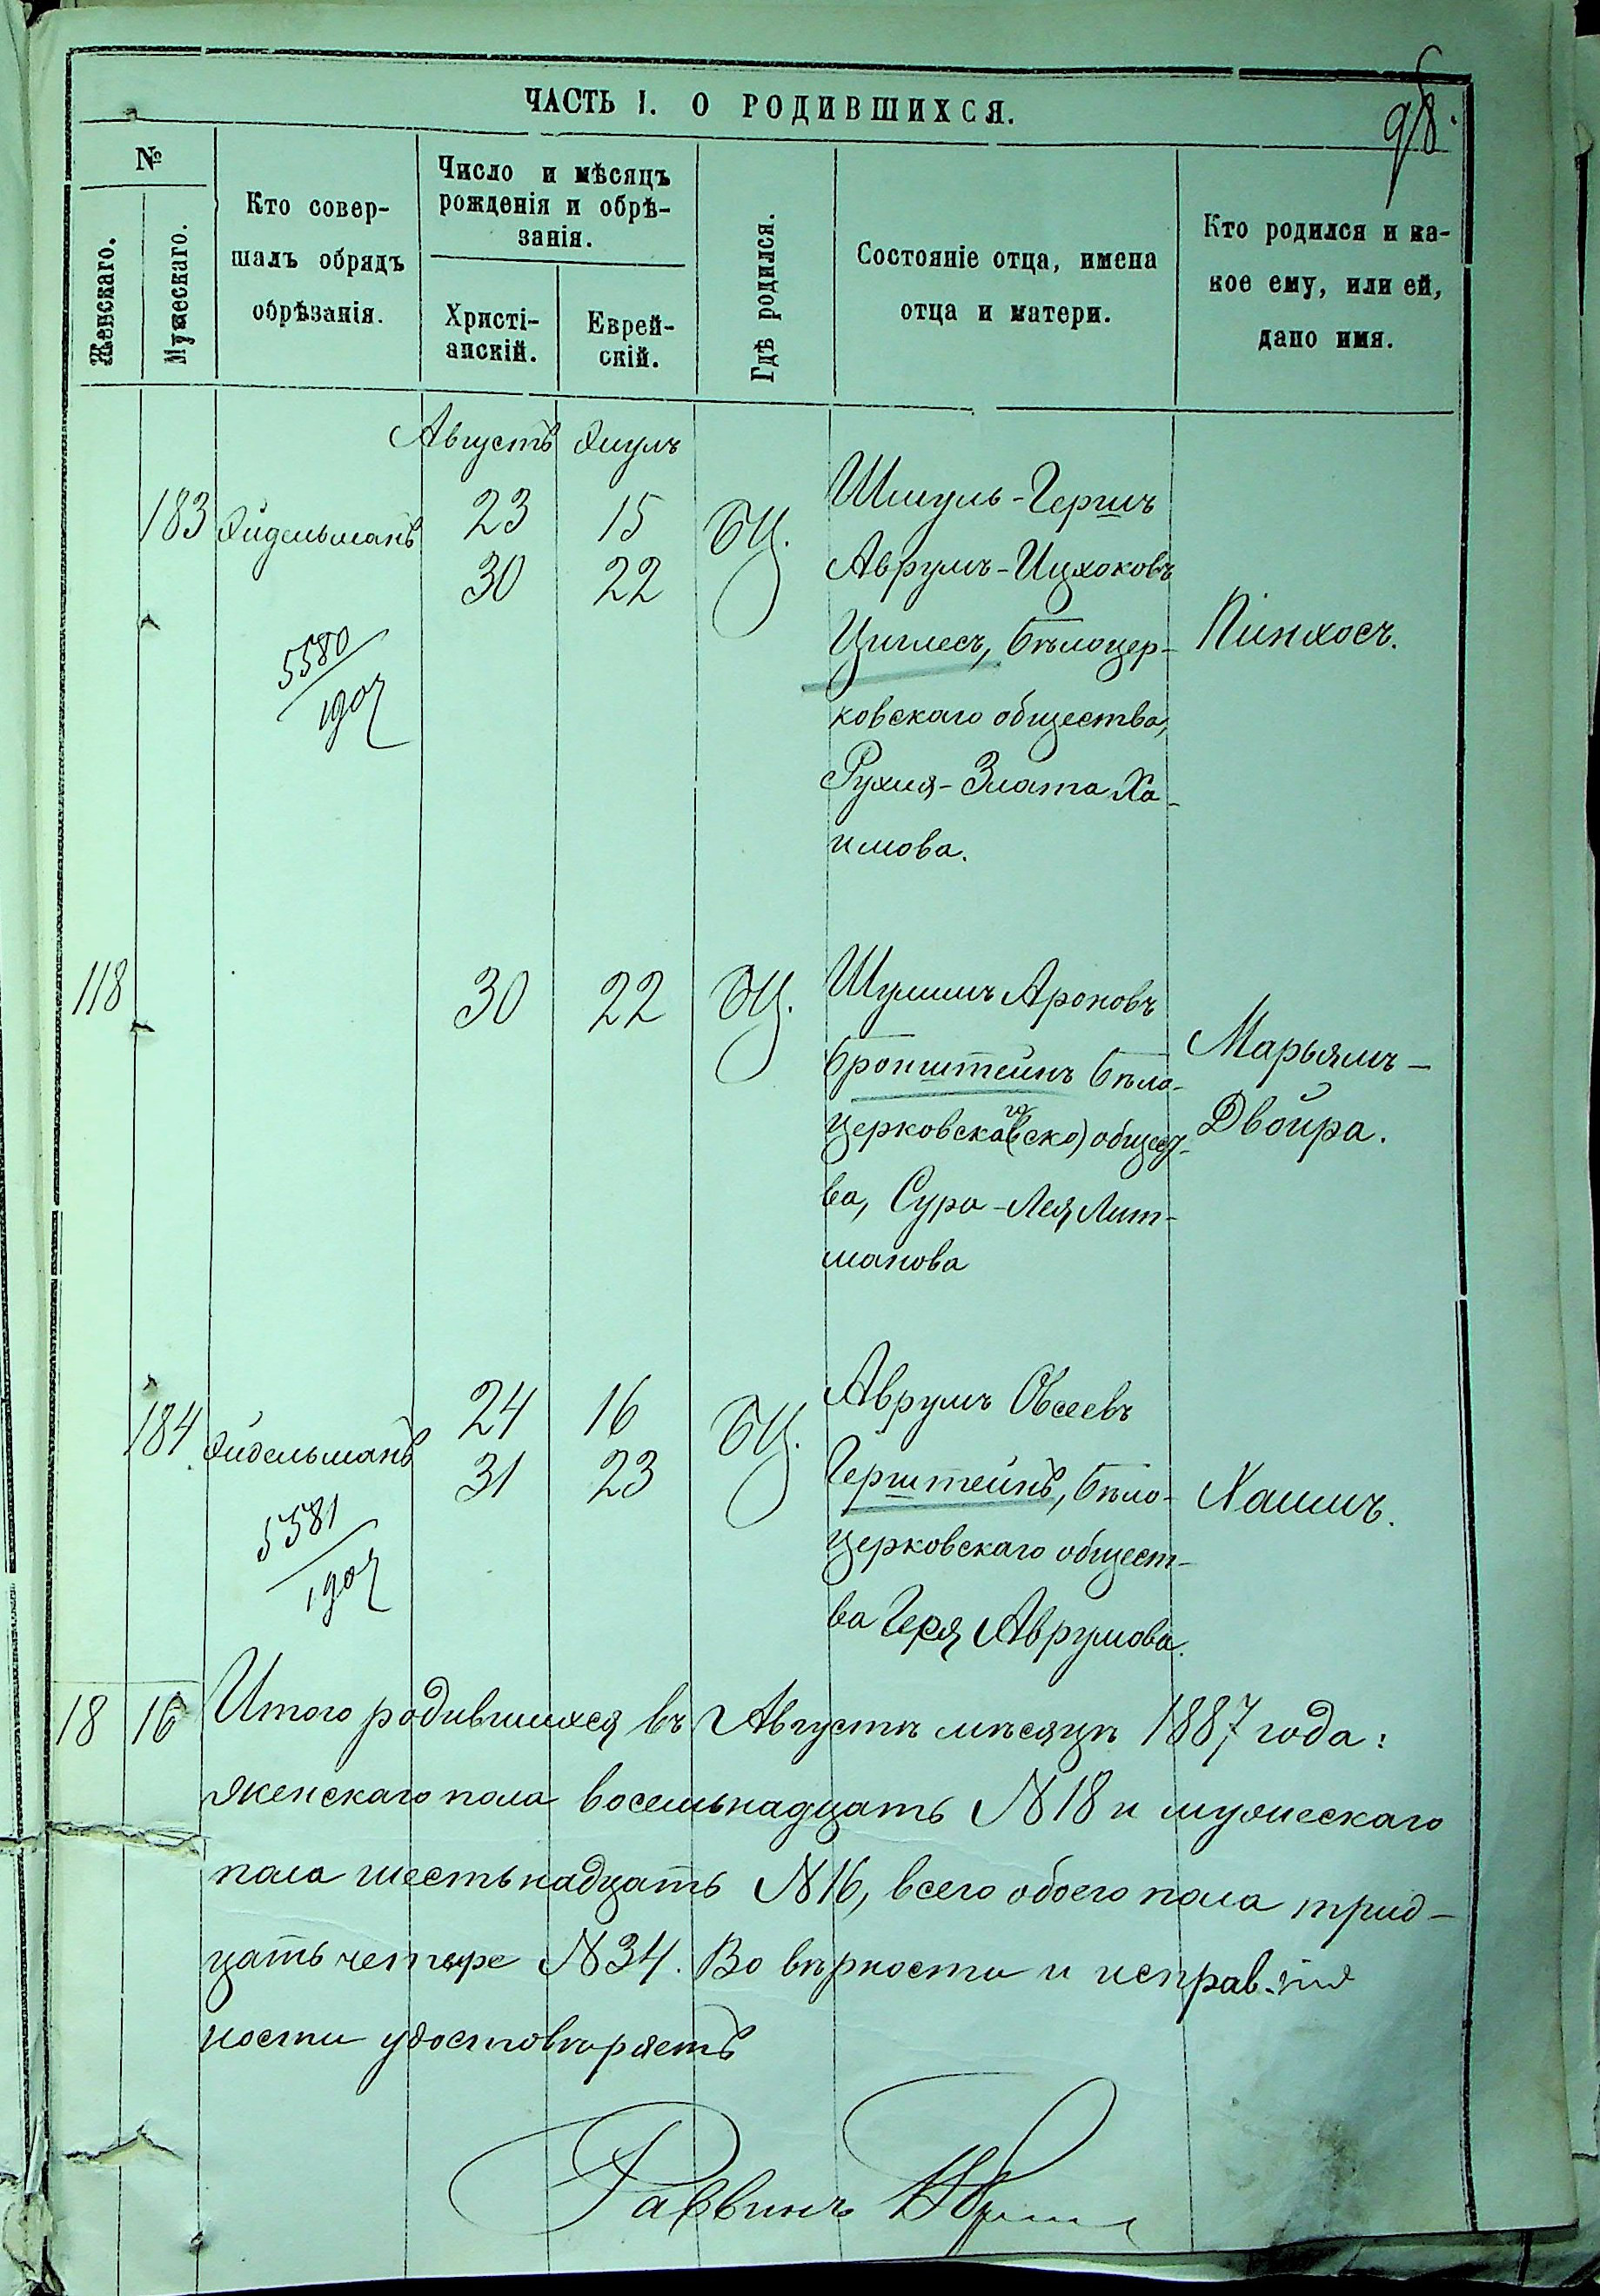 ЧАСТЬ I. О РОДИВШИХСЯ.
98.
№
Женскаго.
Мужескаго.
Кто совер-
шалъ обрядъ
обрѣзанія.
Число и мѣсяцъ
рожденія и обрѣ-
занія.
Христі-
анскій.
Еврей-
скій.
Гдѣ родился.
Состояніе отца, имена
отца и матери.
Кто родился и ка-
кое ему, или ей,
дано имя.
Августъ Элулъ
183 Эйдельманъ 23 15 БЦ.
30 22
5580
1907
Шмуль-Гершъ
Аврумъ-Ицхоковъ
Циглесъ, Бѣлоцер-
ковскаго общества,
Рухля-Злата Ха-
имова.
Пинхосъ.
118 30 22 БЦ.
Шулимъ Ароновъ
Бронштейнъ Бѣло-
церковска(вско)го общест-
ва, Сура-Лея Лит-
манова
Марьямъ-
Двойра.
184 Эйдельманъ 24 16 БЦ.
31 23
5581
1907
Аврумъ Овсеевъ
Герштейнъ, Бѣло-
церковскаго общест-
ва Геня Аврумова.
Хаимъ.
18 16 Итого родившихся въ Августѣ мѣсяцѣ 1887 года:
женскаго пола восемьнадцать N18 и мужескаго
пола шестьнадцать N16, всего обоего пола трид-
цать четыре N34. Во вѣрности и исправ-
ности удостовѣряетъ
Раввинъ